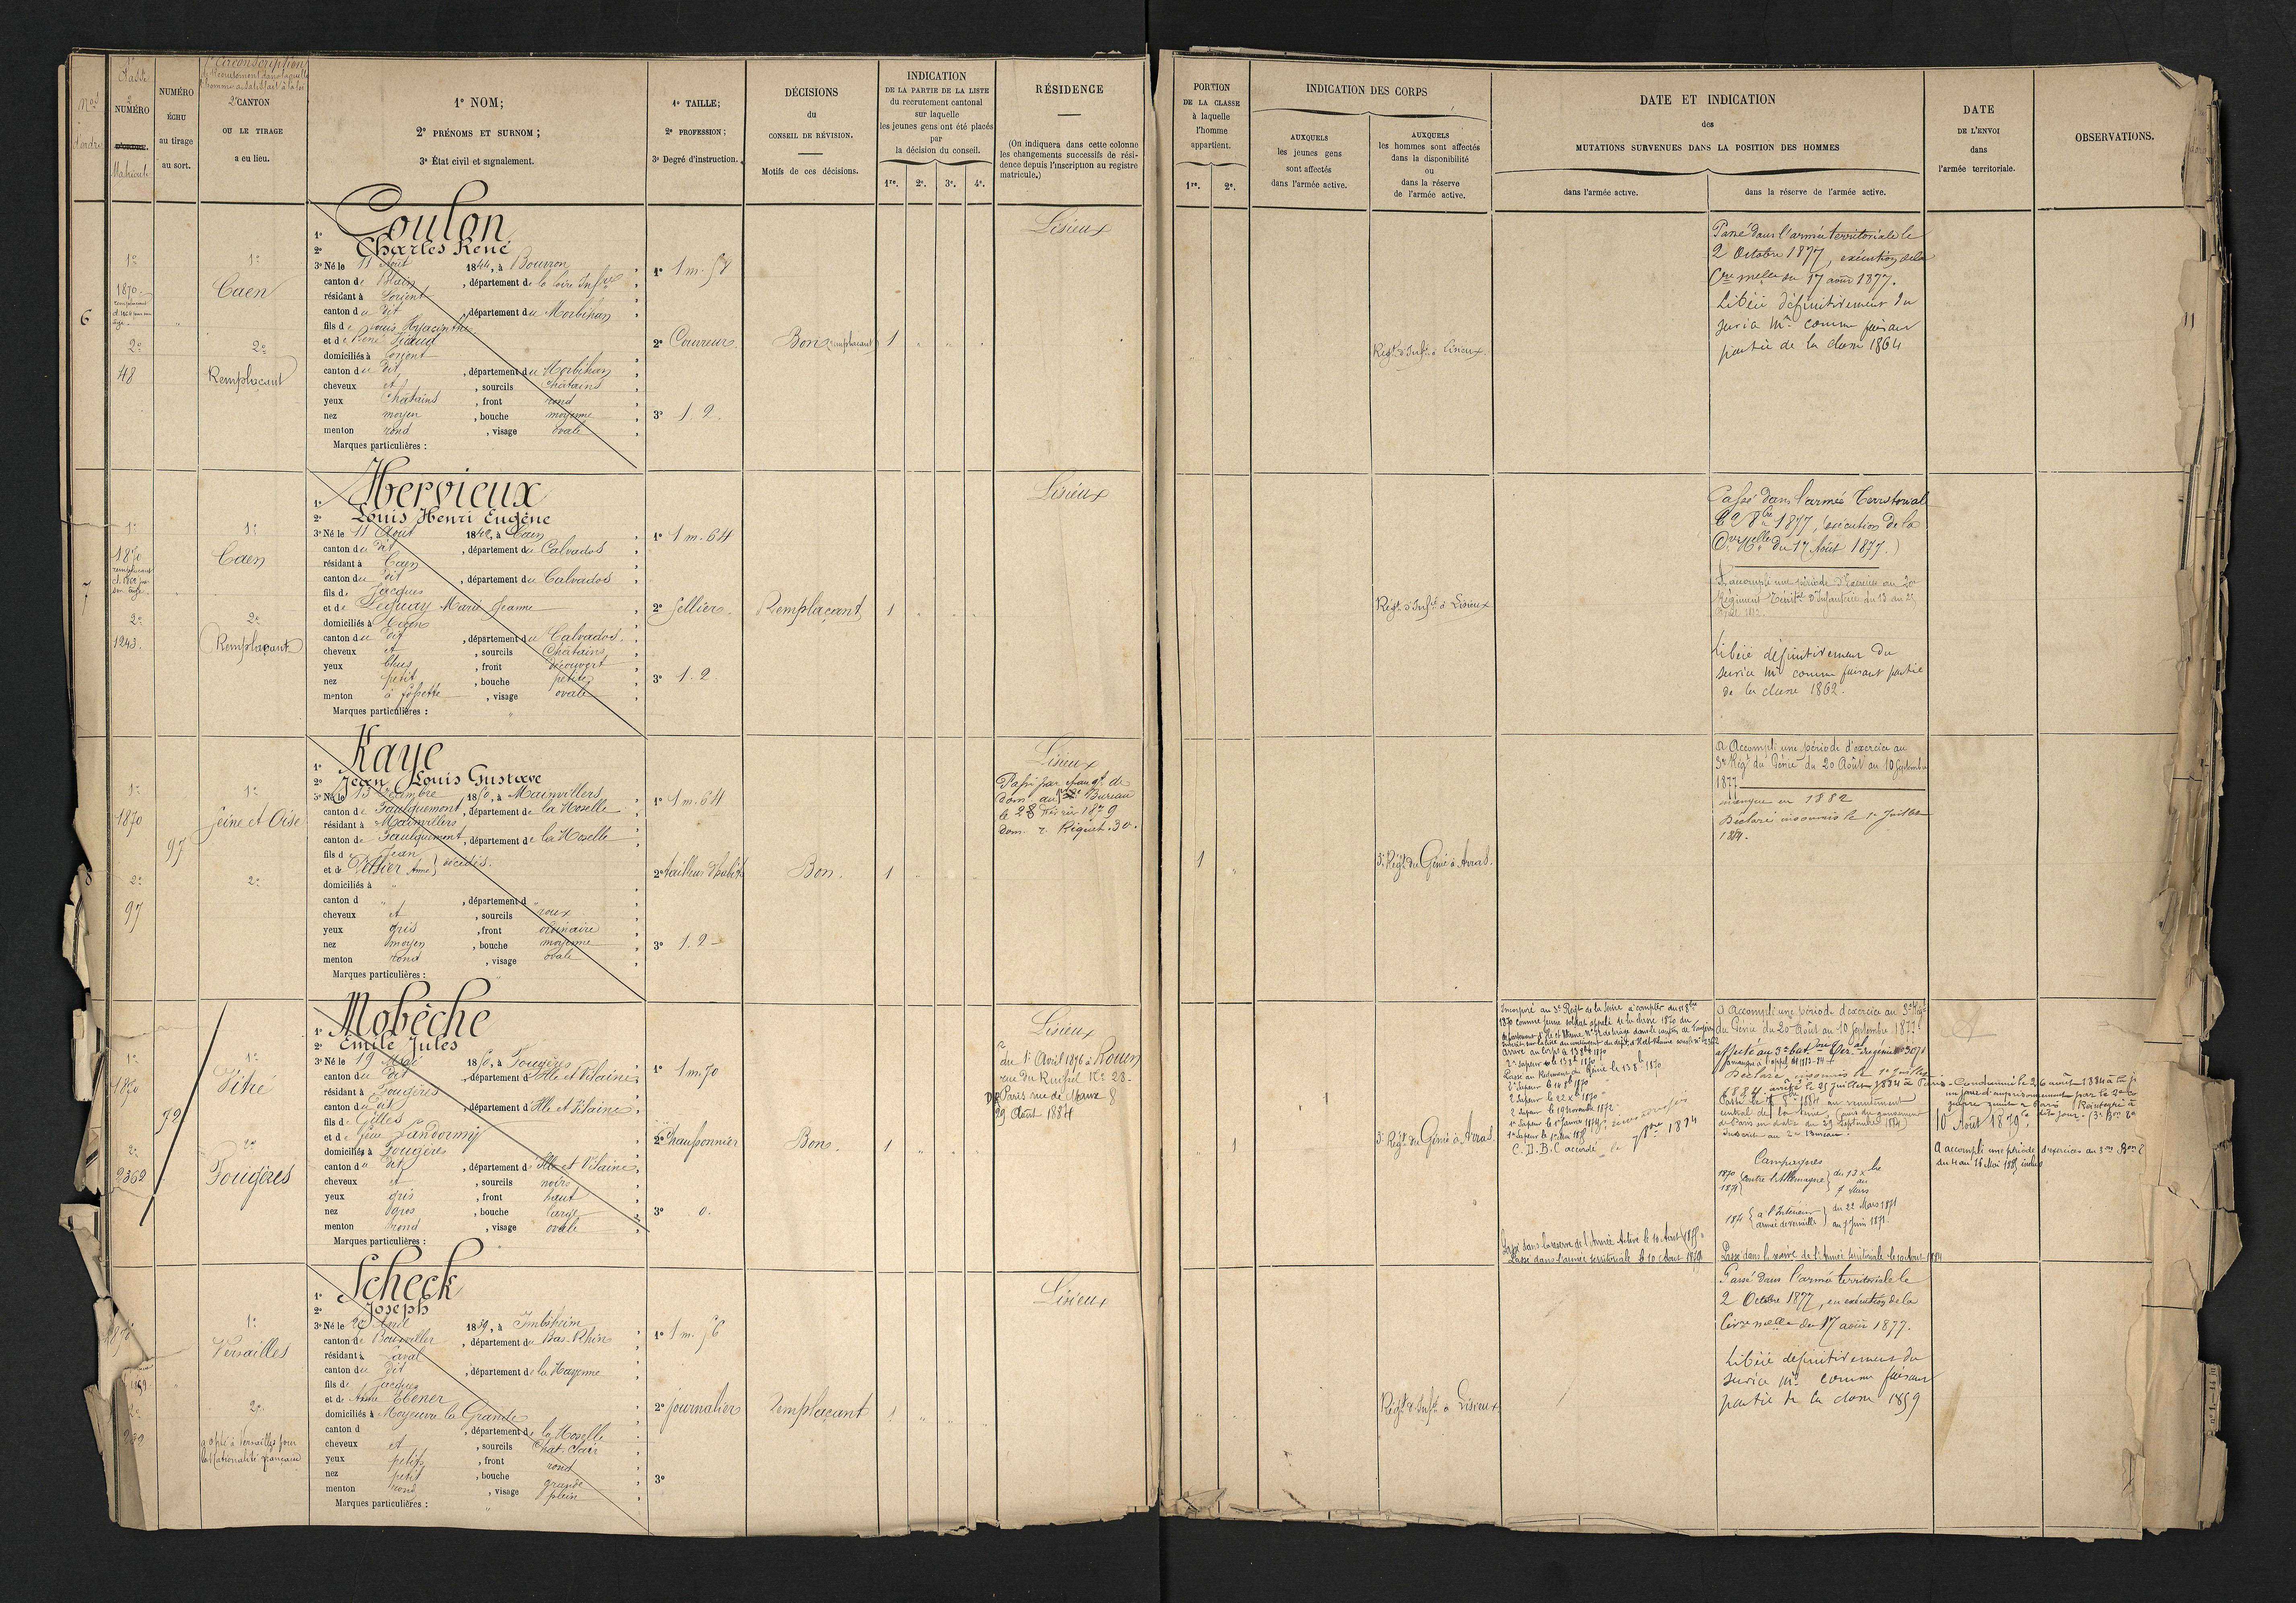 Nos
d'ordre
Classe
2°
NUMÉRO
Matricule
NUMÉRO
ÉCHU
au tirage
au sort.
1° Circonscription
de Recrutement dans laquelle
l'homme a satisfait à la loi
2° CANTON
OU LE TIRAGE
a eu lieu.
1° NOM;
2° PRÉNOMS ET SURNOM;
3° État civil et signalement.
1° TAILLE;
2° PROFESSION;
3° Degré d'instruction.
DÉCISIONS
du
CONSEIL DE RÉVISION.
Motifs de ces décisions.
INDICATION
DE LA PARTIE DE LA LISTE
du recrutement cantonal
sur laquelle
les jeunes gens ont été placés
par
la décision du conseil.
1re. 2e. 3e. 4e.
RÉSIDENCE
(On indiquera dans cette colonne
les changements successifs de rési-
dence depuis l'inscription au registre
matricule.)
PORTION
DE LA CLASSE
à laquelle
l'homme
appartient.
1re. 2e.
INDICATION DES CORPS
AUXQUELS
les jeunes gens
sont affectés
dans l'armée active.
AUXQUELS
les hommes sont affectés
dans la disponibilité
ou
dans la réserve
de l'armée active.
DATE ET INDICATION
des
MUTATIONS SURVENUES DANS LA POSITION DES HOMMES
dans l'armée active.
dans la réserve de l'armée active.
DATE
DE L'ENVOI
dans
l'armée territoriale.
OBSERVATIONS.
6
1°
1870
2°
48
1°
Caen
2°
Remplaçant
1° Coulon
2° Charles René
3° Né le 11 Août 1844, à Bouvron
canton de Blain, département de la Loire Infre
résidant à Lorient
canton du dit, département du Morbihan
fils de Louis Hyacinthe
et de René
domiciliés à Lorient
canton du dit, département du Morbihan
cheveux et, sourcils Châtains
yeux Châtains, front rond
nez moyen, bouche moyenne
menton rond, visage ovale
Marques particulières :
1° 1 m. 57
2° Couvreur
3° 1. 2.
Bon remplaçant
1
Lisieux
Régt d'Infie à Lisieux
Passé dans l'armée territoriale le
2 Octobre 1877, exécution de la
Cre melle du 17 août 1877.
Libéré définitivement du
service mre comme faisant
partie de la classe 1864
11
7
1°
1870
remplaçant
2°
1243.
1°
Caen
2°
Remplaçant
1° Hervieux
2° Louis Henri Eugène
3° Né le 11 Août 1842, à Caen
canton du dit, département du Calvados
résidant à Caen
canton du dit, département du Calvados
fils de Jacques
et de Lequay Marie Jeanne
domiciliés à Caen
canton du dit, département du Calvados.
cheveux et, sourcils Châtains
yeux bleus, front découvert
nez petit, bouche petite
menton à fossette, visage ovale
Marques particulières :
1° 1 m. 64
2° Sellier.
3° 1. 2
Remplaçant
1
Lisieux
Régt d'Infie à Lisieux
Passé dans l'armée Territorial
le 2 8bre 1877, (exécution de la
Cre Melle du 17 Août 1877.)
A accompli une période d'exercice au 20e
Régiment Territal d'Infanterie du 13 au 25
Libéré définitivement du
service mre comme faisant partie
de la classe 1862.
8
1°
1870
2°
97
97
1°
Seine et Oise
2°
1° Kaye
2° Jean Louis Gustave
3° Né le 1850, à Mainvillers
canton de Faulquemont, département de la Moselle
résidant à Mainvillers
canton de Faulquemont, département de la Moselle
fils de Jean
et de Anne } décédés.
domiciliés à
canton d , département d
cheveux et, sourcils roux
yeux gris, front ordinaire
nez moyen, bouche moyenne
menton rond, visage ovale
Marques particulières :
1° 1 m. 64
2° tailleur d'habits
3° 1. 2
Bon.
1
Lisieux
Passé par changt de
dom. au Bureau
le 28 Février 1879
dom. r. Riquet. 30.
1
3e Régt du Génie à Arras.
A Accompli une période d'exercice au
3e Régt du Génie du 20 Août au 10 Septembre
1877
manque en 1882
Déclaré insoumis le 1er Juillet
1884.
1°
1870
2°
2362
92
1°
Vitré
2°
Fougères
1° Mobèche
2° Emile Jules
3° Né le 19 Mai 1850, à Fougères
canton du dit, département d'Ille et Vilaine
résidant à Fougères
canton du dit, département d'Ille et Vilaine.
fils de Gilles
et de Landormy
domiciliés à Fougères
canton du dit, département d'Ille et Vilaine
cheveux et, sourcils noirs
yeux gris, front haut
nez gros, bouche large
menton rond, visage ovale
Marques particulières :
1° 1 m. 70
2° Chaussonnier
3° 0.
Bon.
1
Lisieux
du 1er Avril 1876 à Rouen
rue du Ruissel No 28.
Paris rue de Meaux 8
29 Août 1884
1
1
3e Régt du Génie à Arras.
1870 comme jeune soldat appelé de la classe 1870 du
département d'Ille et Vilaine
arrivé au corps le 13 8bre 1870
2e Sapeur le 13 8bre 1870
Passé au Régiment du Génie le 13 8bre 1870
2 Sapeur le 19 Novembre 1872
C. D. B. C accordé le 7bre 1874
Passé dans la réserve de l'Armée Active le 10 Août 1875
Passé dans l'armée territoriale le 10 Août 1879
A Accompli une période d'exercice au 3e Régt
du Génie du 20 Août au 10 Septembre 1877.
Déclaré insoumis le 1er Juillet
1884, arrêté le 25 juillet 1884 à Paris - Condamné le 26 août 1884 à la
central de la Seine,
de Paris en date du 29 Septembre 1884)
Campagnes
1870 } contre l'Allemagne } du 13 xbre
1871 } au
7 Mars
1871 { à l'Intérieur } du 22 Mars 1871
armée de Versailles } au 7 Juin 1871.
Passé dans la réserve de l'Armée territoriale le 10 Août 1884
10 Août 1879.
A accompli une période d'exercices au 3me Bon
du 4 au 16 Mai 1885 inclus
1870
2°
1°
Versailles
2°
a opté à Versailles pour
la Nationalité française
1° Scheck
2° Joseph
3° Né le 20 Avril 1839, à Imbsheim
canton de Bouxwiller, département du Bas-Rhin
résidant à Laval
canton du dit, département de la Mayenne
fils de Jacques
et de Anne Ebener
domiciliés à Moyeuvre la Grande
canton d , département de la Moselle
cheveux et, sourcils Chat. clair
yeux petits, front rond
nez petit, bouche grande
menton rond, visage plein
Marques particulières :
1° 1 m. 56
2° Journalier
3°
Remplaçant
1
Lisieux
Régt d'Infie à Lisieux
Passé dans l'armée territoriale le
2 Octobre 1877, en exécution de la
Circ melle du 17 août 1877.
Libéré définitivement du
service mre comme faisant
partie de la classe 1859